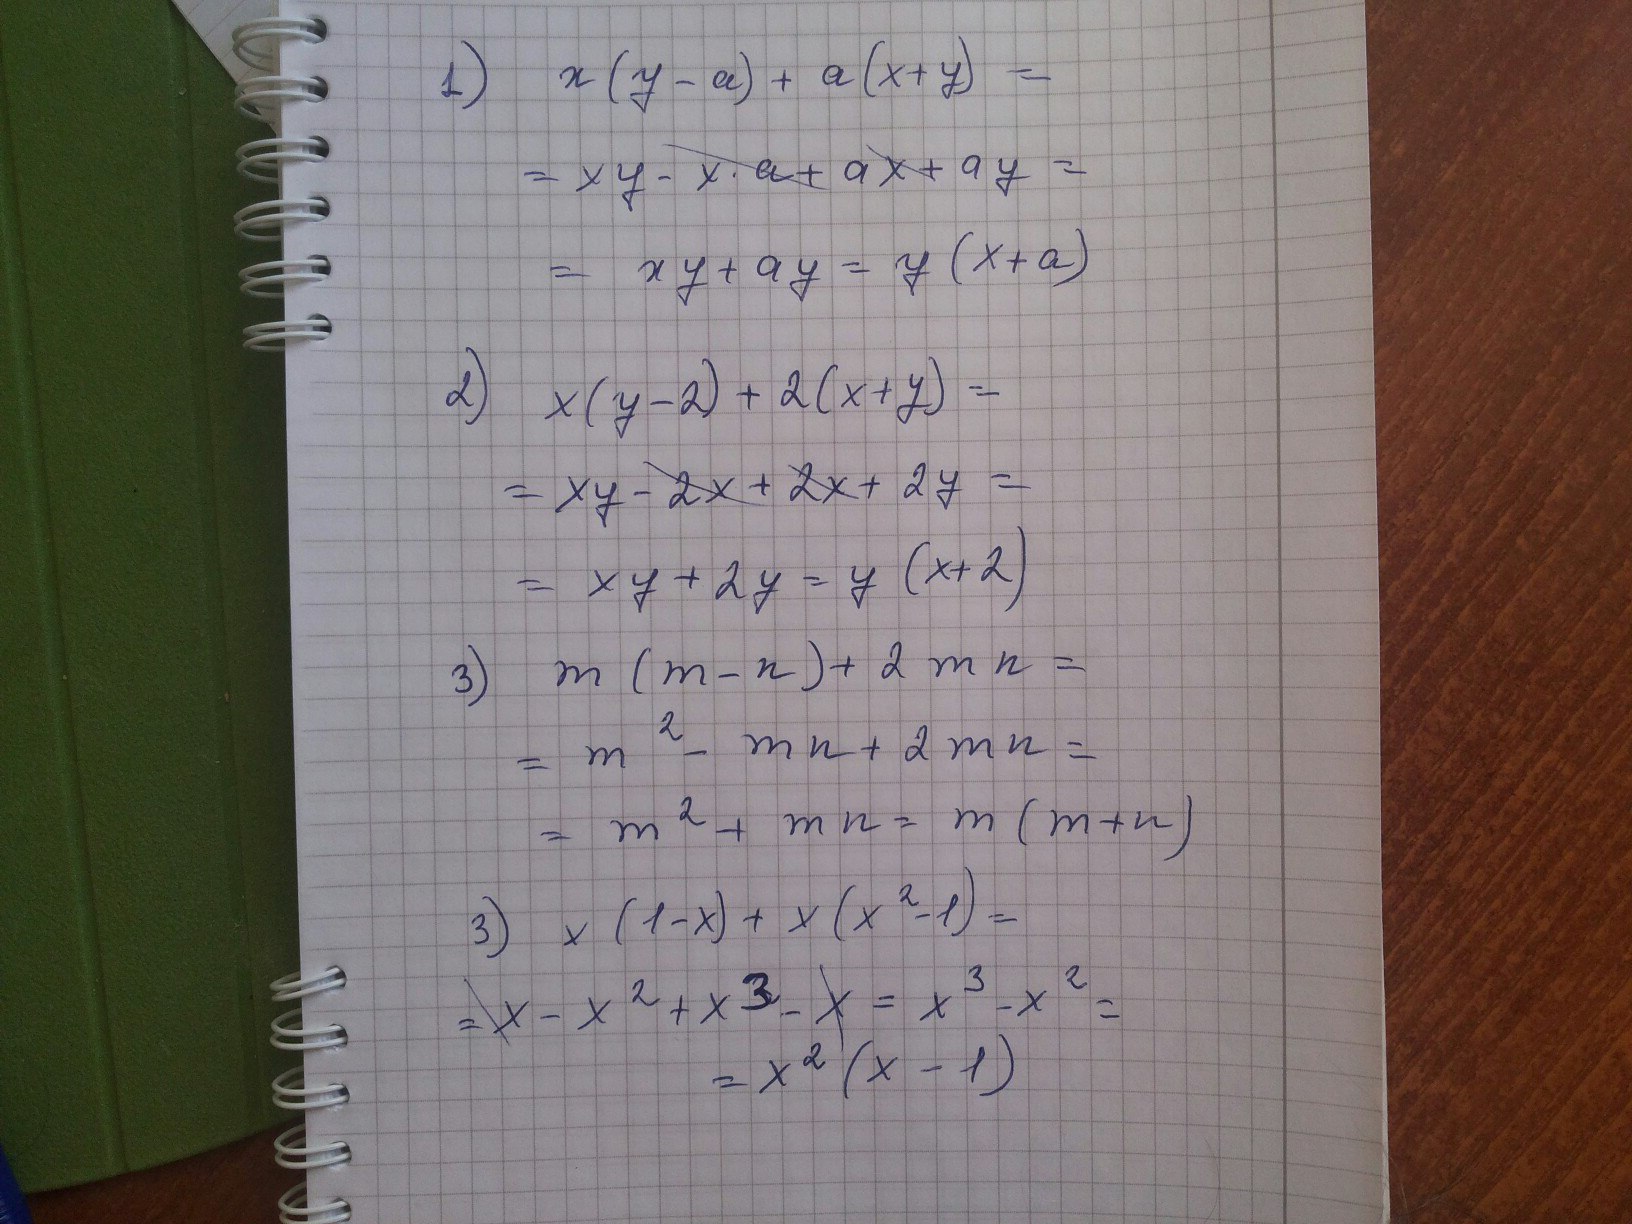 1) x(y-a)+a(x+y)=
=xy-x·a+ax+ay=
=xy+ay=y(x+a)
2) x(y-2)+2(x+y)=
=xy-2x+2x+2y=
=xy+2y=y(x+2)
3) m(m-n)+2mn=
=m²-mn+2mn=
=m²+mn=m(m+n)
3) x(1-x)+x(x²-1)=
=x-x²+x³-x=x³-x²=
=x²(x-1)